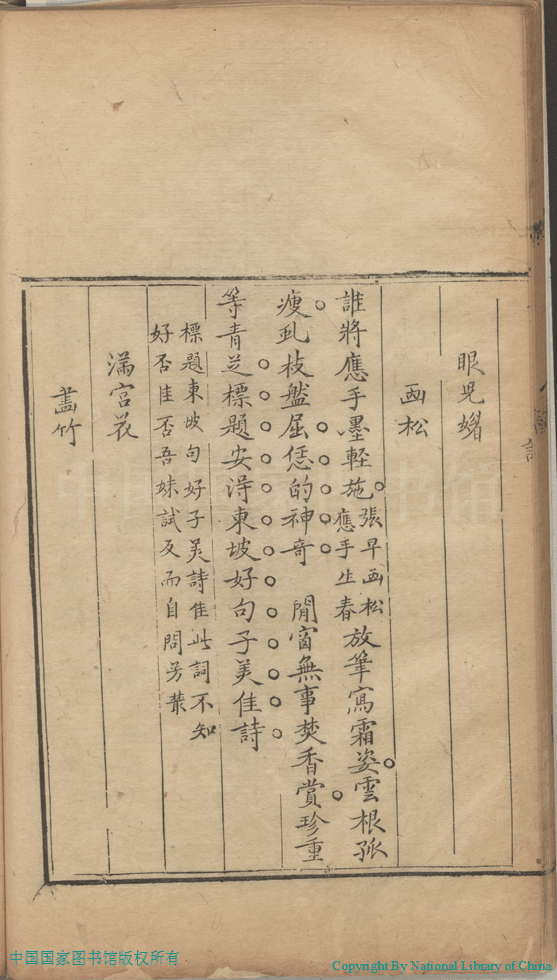 眼児媚
画松
誰將應手墨輕施張早画松應手生春放筆寫霜姿雲根孤
瘦虬枝盤屈恁的神竒　閒窗無事焚香賞珍重
等青芝標題安淂東坡好句子美佳詩
標題東坡句好子美詩佳此詞不知
好否佳否吾妹試反而自問芳叢
滿宫花
畵竹
中国国家图书馆版权所有
Copyright By National Library of China